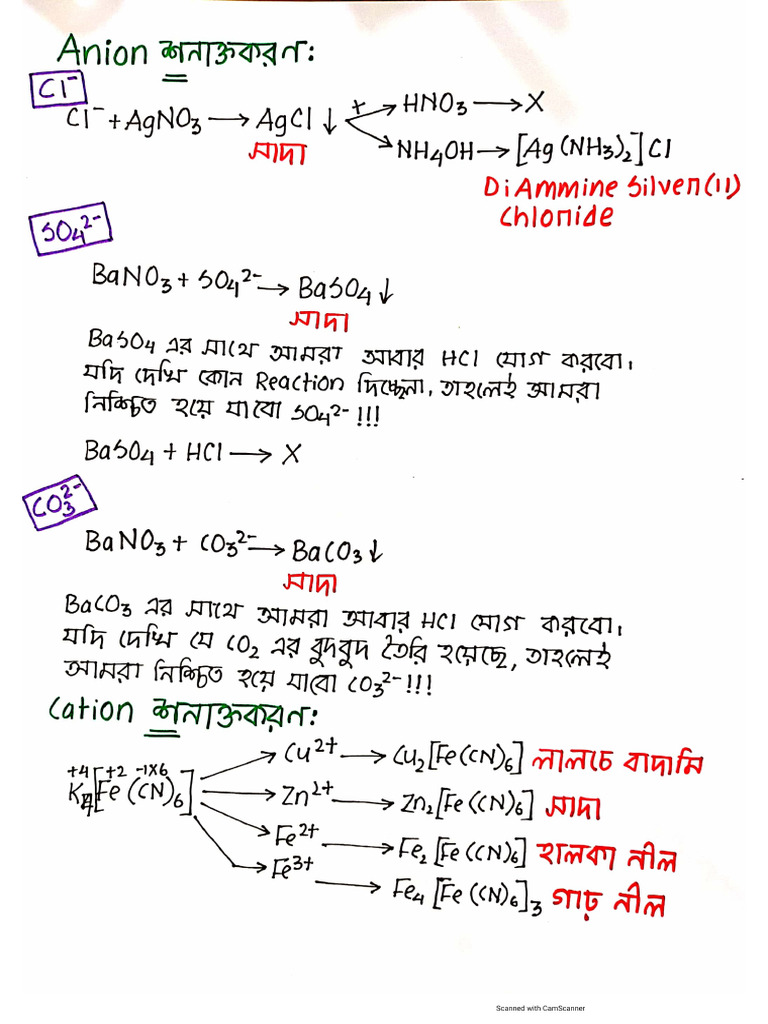 Anion শনাক্তকরণ:
Cl⁻
Cl⁻ + AgNO₃ ⟶ AgCl ↓ + HNO₃ ⟶ X
সাদা NH₄OH ⟶ [Ag(NH₃)₂]Cl
DiAmmine Silver(II)
Chloride
SO₄²⁻
BaNO₃ + SO₄²⁻ ⟶ BaSO₄↓
সাদা
BaSO₄ এর সাথে আমরা আবার HCl যোগ করবো।
যদি দেখি কোন Reaction দিচ্ছেনা, তাহলেই আমরা
নিশ্চিত হয়ে যাবো SO₄²⁻!!!
BaSO₄ + HCl ⟶ X
CO₃²⁻
BaNO₃ + CO₃²⁻ ⟶ BaCO₃↓
সাদা
BaCO₃ এর সাথে আমরা আবার HCl যোগ করবো।
যদি দেখি যে CO₂ এর বুদবুদ তৈরি হয়েছে, তাহলেই
আমরা নিশ্চিত হয়ে যাবো CO₃²⁻!!!
Cation শনাক্তকরণ:
Cu²⁺ ⟶ Cu₂[Fe(CN)₆] লালচে বাদামি
+4 +2 -1×6
K₄[Fe(CN)₆]
Zn²⁺ ⟶ Zn₂[Fe(CN)₆] সাদা
Fe²⁺ ⟶ Fe₂[Fe(CN)₆] হালকা নীল
Fe³⁺ ⟶ Fe₄[Fe(CN)₆]₃ গাঢ় নীল
Scanned with CamScanner